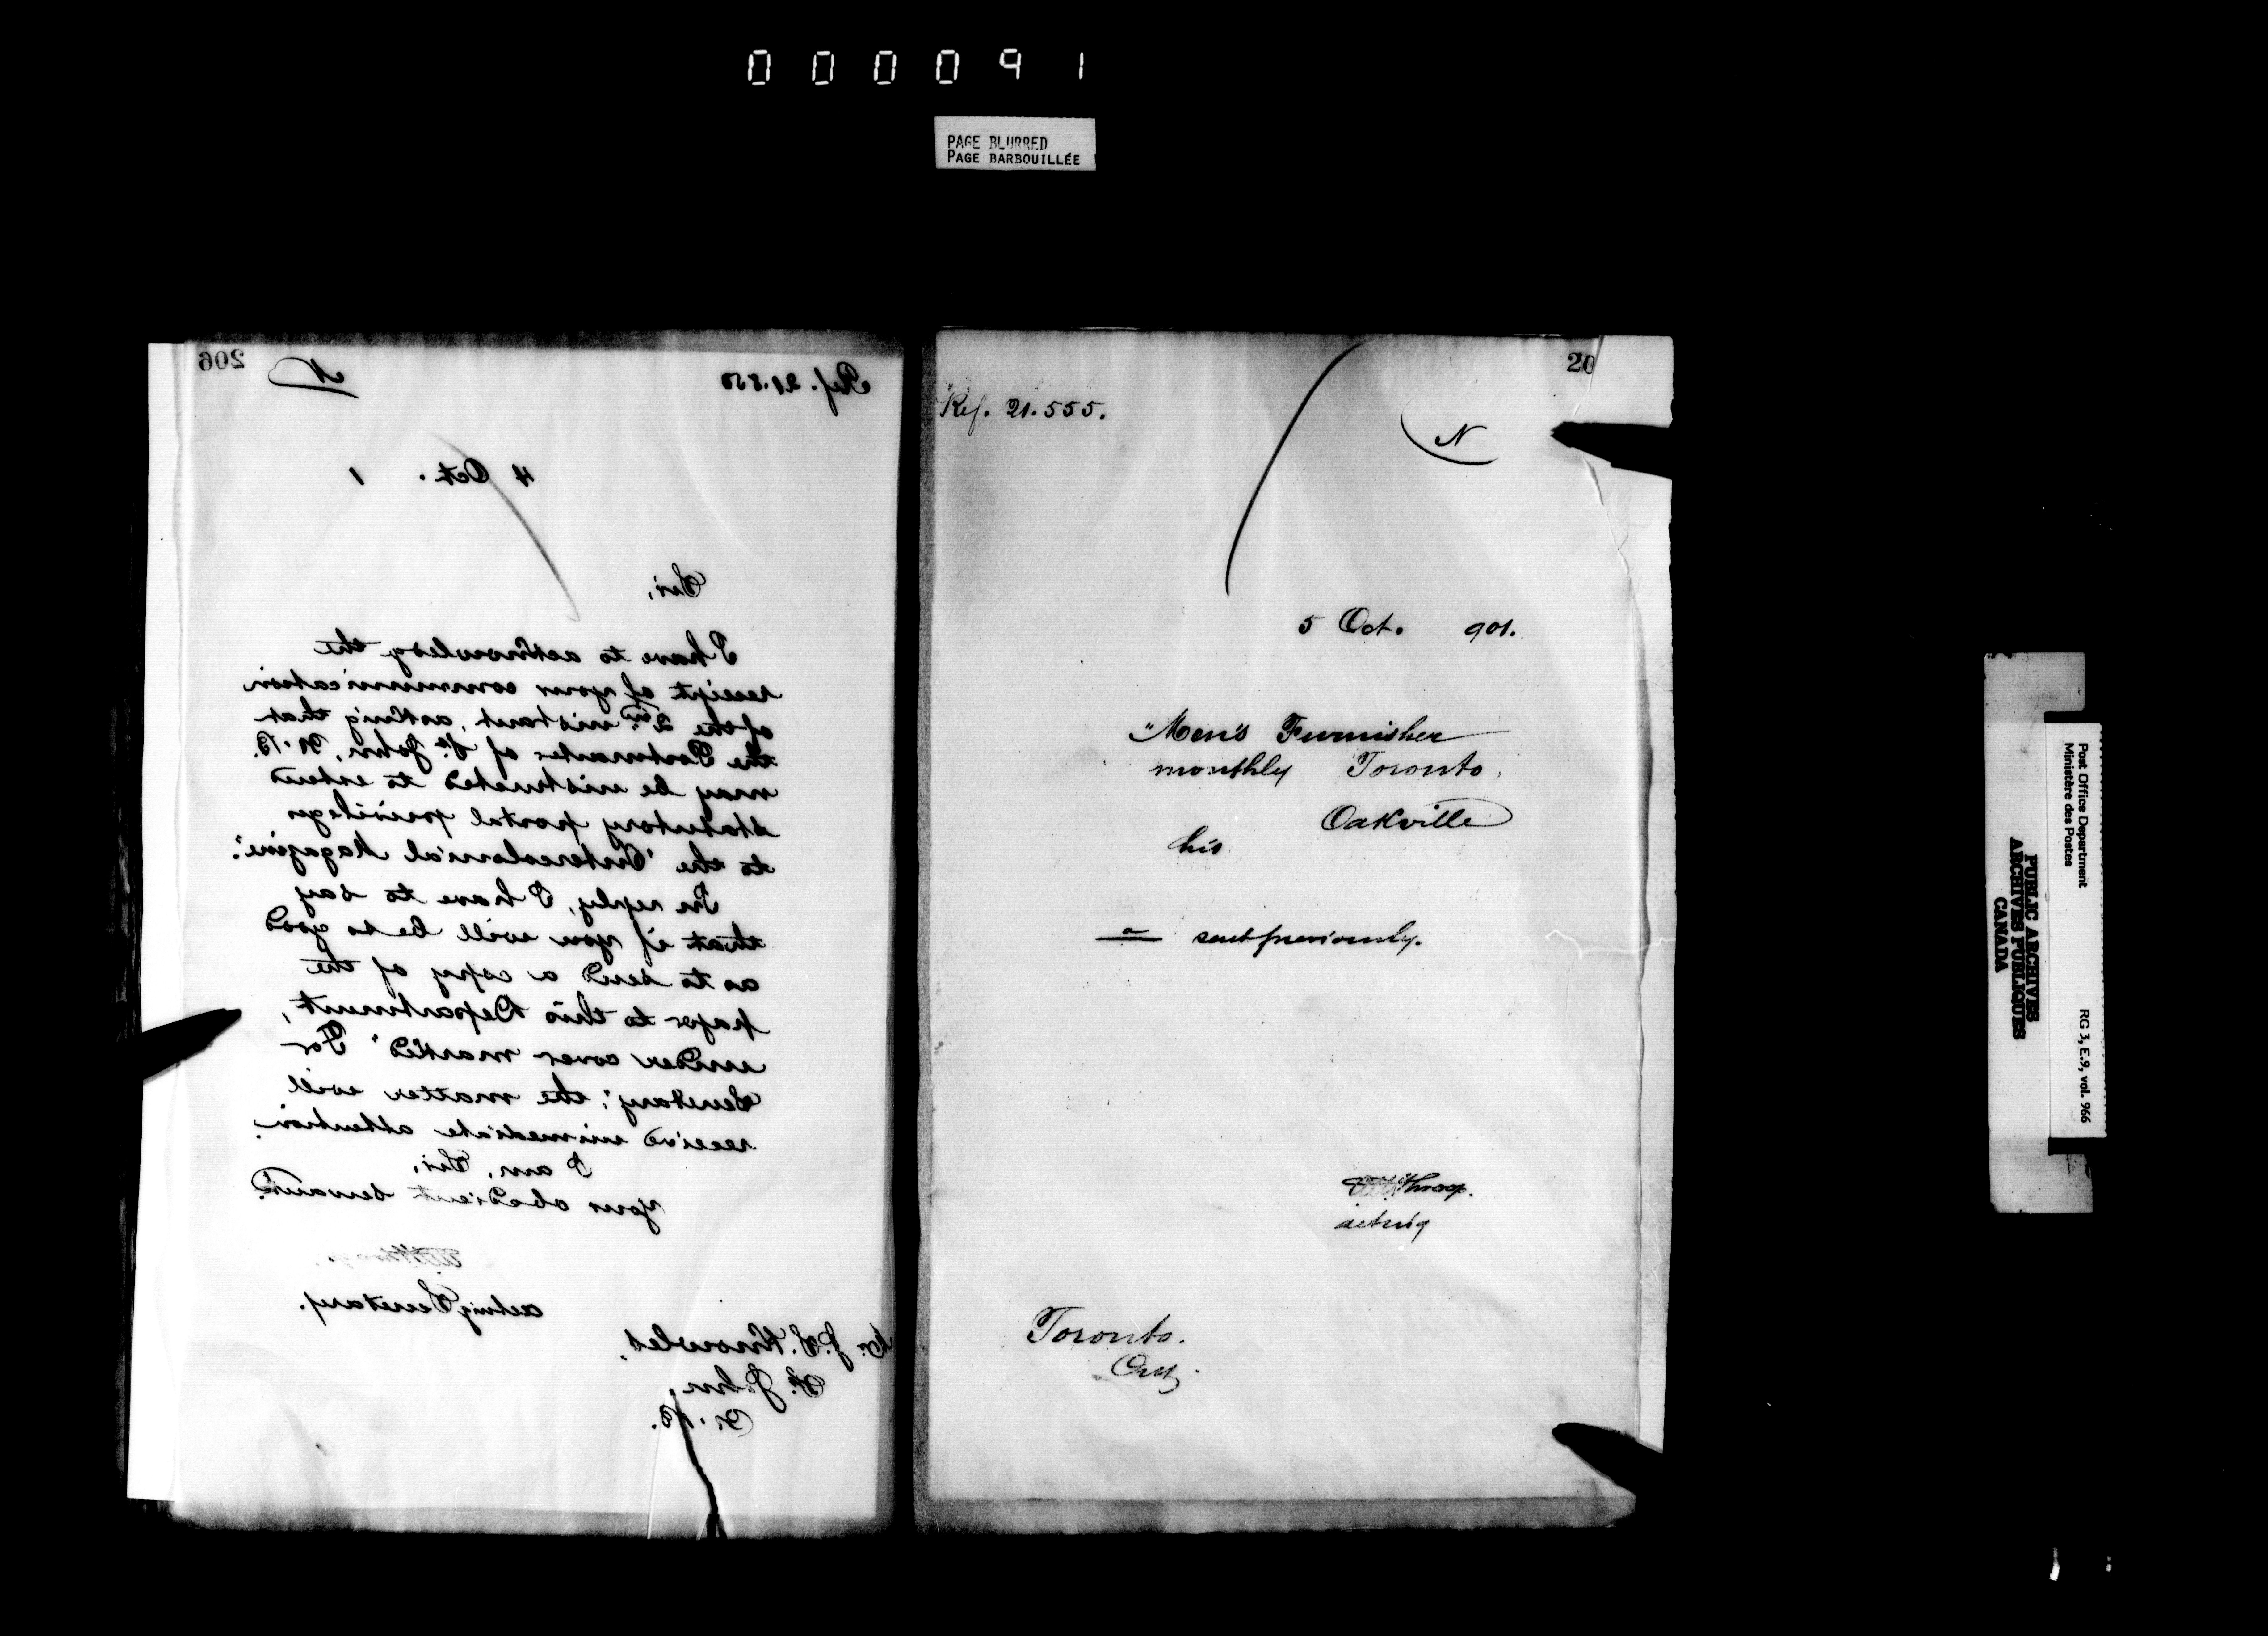 000091
PAGE BLURRED
PAGE BARBOUILLÉE
206
N
Ref. 21.550
4 Oct. 1
Sir,
I have to acknowledge the
receipt of your communication
of the 2nd instant, asking that
the Postmaster of St. John, N.B.
may be instructed to extend
statutory postal privileges
to the "Intercolonial Magazine".
In reply, I have to say
that if you will be so good
as to send a copy of the
paper to this Department,
under cover marked "For
Secretary", the matter will
receive immediate attention.
I am, Sir,
Your obedient servant
acting Secretary.
Mr. J. S. Knowles,
St. John,
N.B.
20
Ref. 21.555.
N
5 Oct. 901.
"Men's Furnisher
monthly Toronto,
Oakville
his
a sent previously.
acting
Toronto.
Ont.
Post Office Department
Ministère des Postes
RG 3, E.9, vol. 966
PUBLIC ARCHIVES
ARCHIVES PUBLIQUES
CANADA